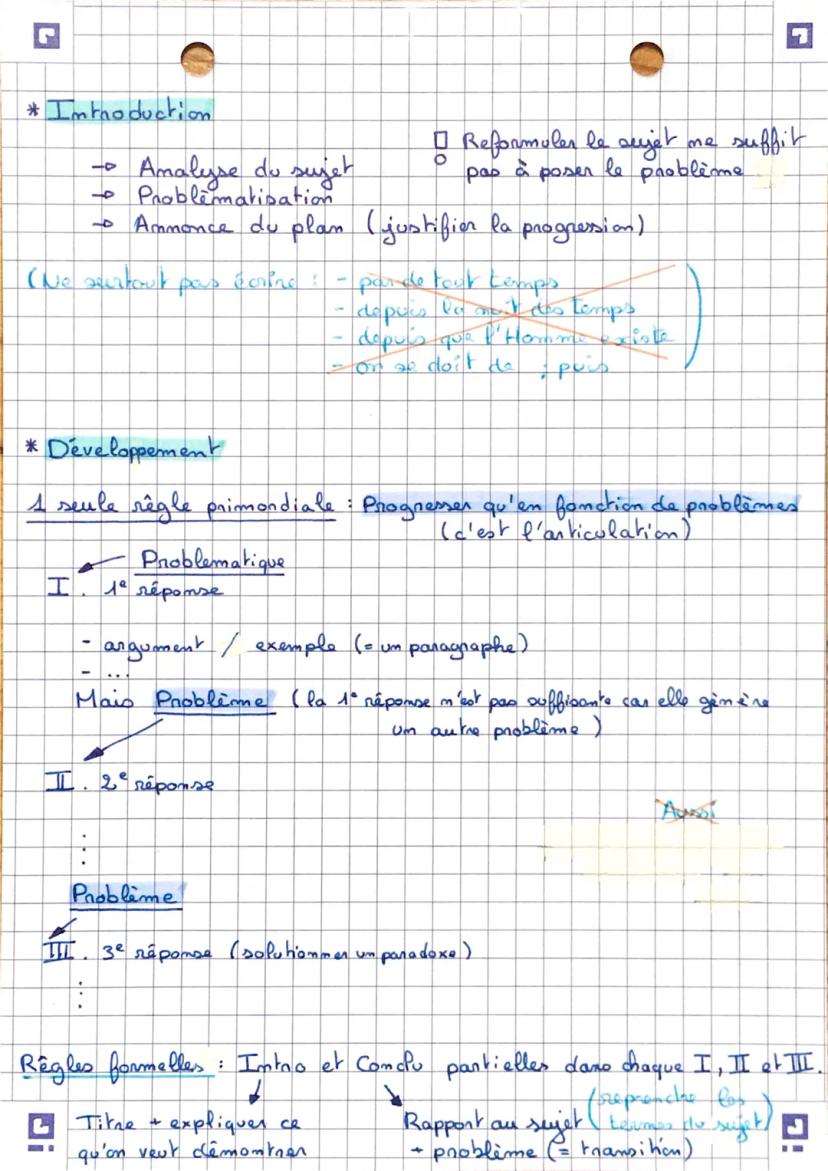 * Introduction
▯ Reformuler le sujet ne suffit
→ Analyse du sujet
pas à poser le problème
→ Problèmatisation
→ Annonce du plan (justifier la progression)
(Ne surtout pas écrire : - par de tout temps
- depuis la nuit des temps
- depuis que l'Homme existe
- on se doit de ; puis )
* Développement
1 seule règle primondiale : Progresser qu'en fonction de problèmes
(c'est l'articulation)
Problematique
I. 1e réponse
- argument / exemple (= un paragraphe)
- ...
Mais Problème (la 1e réponse n'est pas suffisante car elle génère
un autre problème)
II. 2e réponse
Aussi
⋮
Problème
III. 3e réponse (solutionner un paradoxe)
⋮
Règles formelles : Intro et Conclu partielles dans chaque I, II et III.
Titre + expliquer ce
qu'on veut démontrer
Rapport au sujet (reprendre les
termes du sujet)
+ problème (= transition)